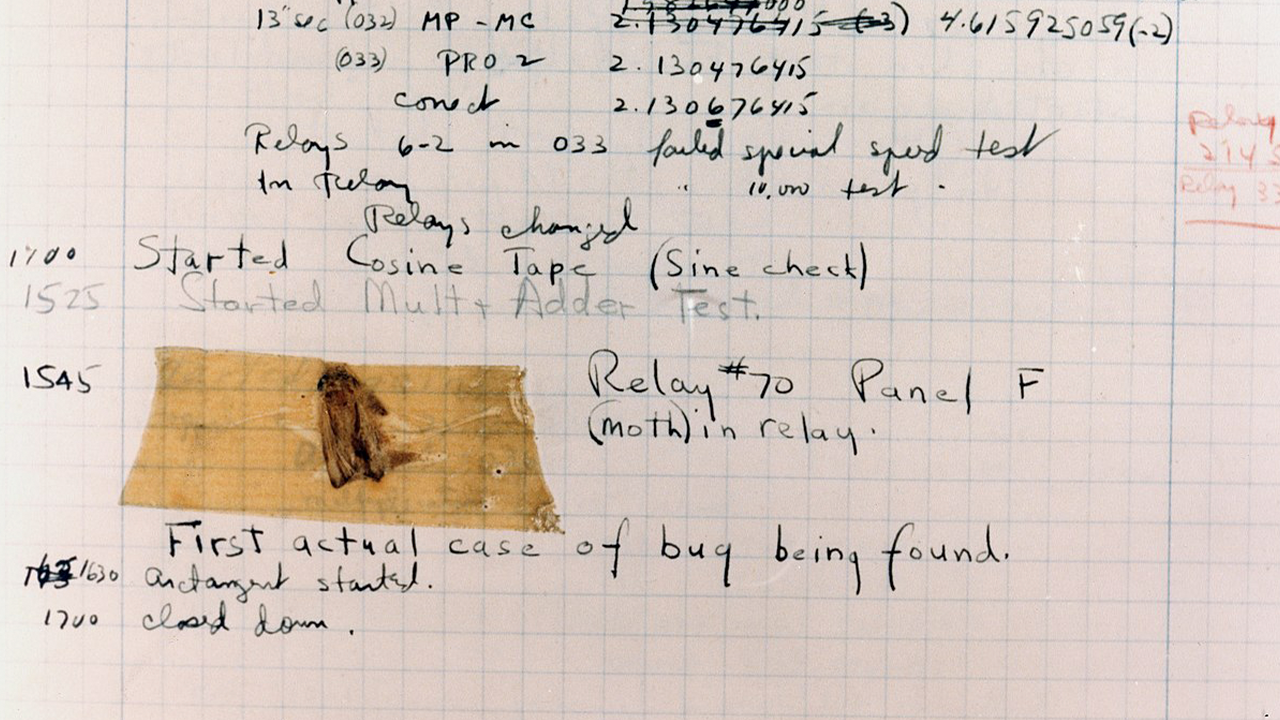 13" sec (032) MP - MC 2.130476415 (-3) 4.615925059(-2)
(033) PRO 2 2.130476415
conect 2.130676415
Relays 6-2 in 033 failed special speed test
In Relay " 10,000 test .
Relays changed
1700 Started Cosine Tape (Sine check)
1525 Started Mult + Adder Test.
1545 Relay #70 Panel F
(moth) in relay.
First actual case of bug being found.
1630 arctangent started.
1700 closed down .
Relay
Relay 33